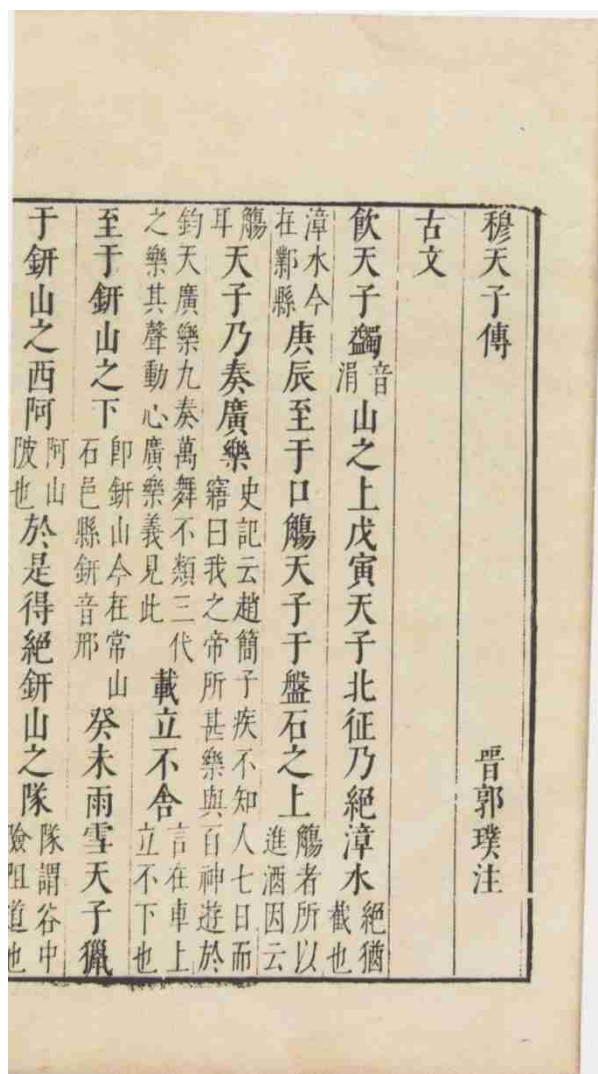 穆天子傳　晋郭璞注
古文
飲天子蠲音涓山之上戊寅天子北征乃絕漳水絕猶截也
漳水今在鄴縣庚辰至于口觴天子于盤石之上觴者所以進酒因云
觴耳天子乃奏廣樂史記云趙簡子疾不知人七日而寤曰我之帝所甚樂與百神遊於
鈞天廣樂九奏萬舞不類三代之樂其聲動心廣樂義見此載立不舍言在車上立不下也
至于鈃山之下卽鈃山今在常山石邑縣鈃音邢癸未雨雪天子獵
于鈃山之西阿阿山陂也於是得絕鈃山之隊隊謂谷中險阻道也